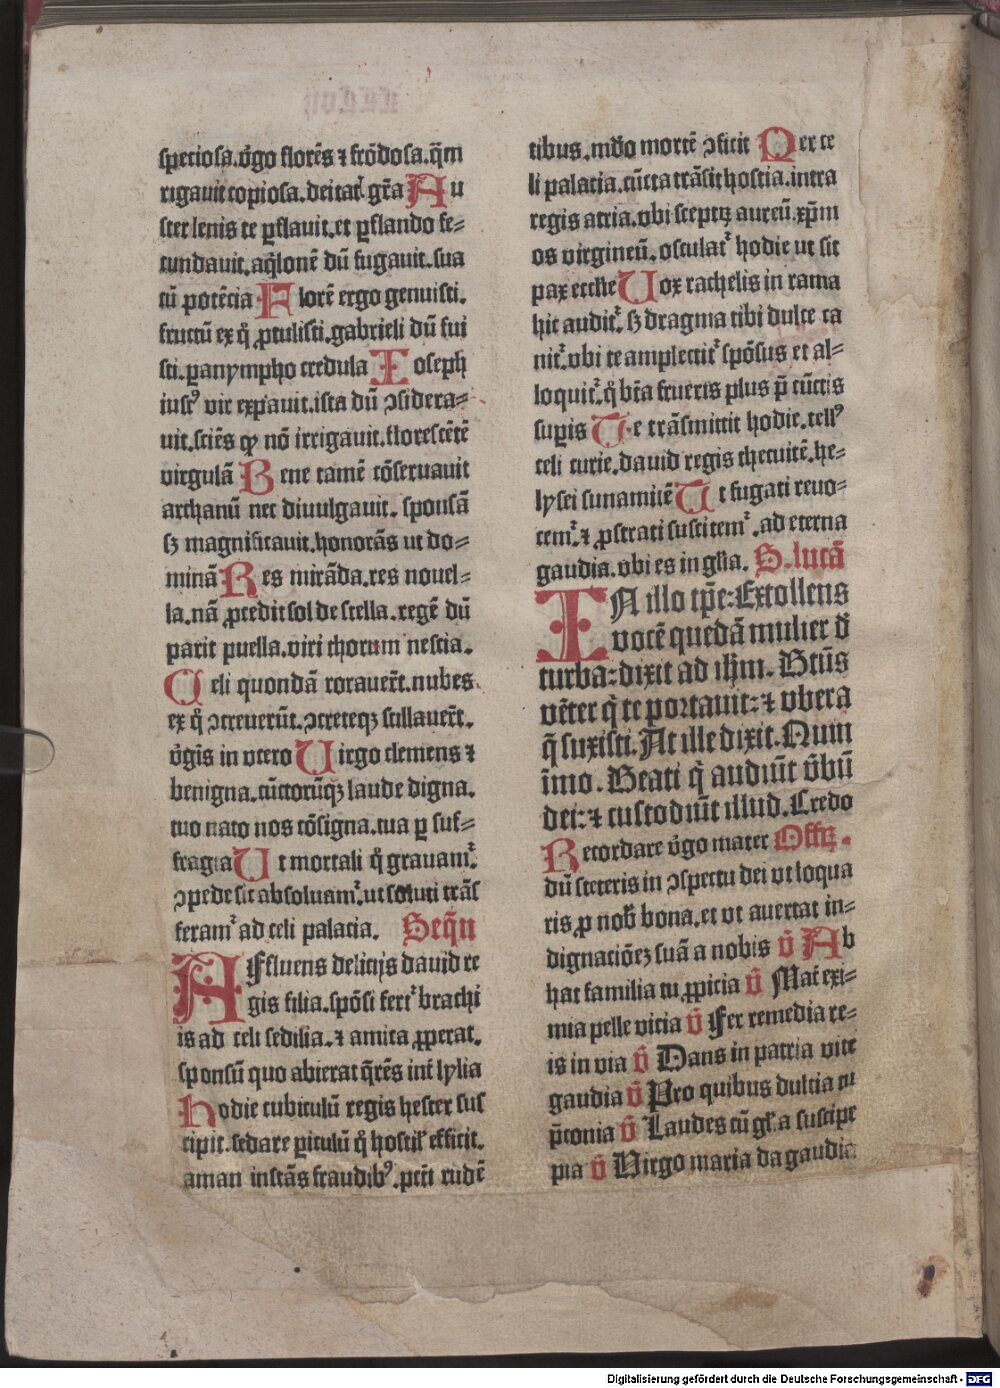 speciosa.v̄go florēs ⁊ frōdosa.q̄m
rigauit copiosa.deitatꝭ gr̄a Au
ster lenis te ꝑflauit.et ꝑflando fe-
cundauit.aq̄lonē dū fugauit.sua
cū potēcia Florē ergo genuisti.
fructū ex qͦ ꝓtulisti.gabrieli dū fui
sti.ꝑanympho credula Ioseph
iustꝰ vir expauit.ista dū ꝯsidera-
uit.sciēs ꝙ nō irrigauit.florescētē
virgulā Bene tamē cōseruauit
archanū nec diuulgauit. sponsā
sꝫ magnificauit.honorās ut do-
minā Res mirāda.res nouel-
la.nā ꝓcedit sol de stella.regē dū
parit puella.viri thorum nescia.
Celi quondā rorauer̄t.nubes
ex qͦ ꝯcreuerūt.ꝯcreteqꝫ stillauer̄t.
v̄gīs in vtero Uirgo clemens ⁊
benigna.cūctorūqꝫ laude digna.
tuo nato nos cōsigna.tua ꝑ suf-
fragia Ut mortali qͦ grauamᷣ.
ꝯpede sit absoluamᷣ.ut soluti trās
feramᷣ ad celi palacia. Seq̄n
Affluens delicijs dauid re
gis filia.spōsi fertᷣ brachi
is ad celi sedilia.⁊ amica ꝓperat.
sponsū quo abierat q̄rēs int̄ lylia
Hodie cubiculū regis hester sus
cipit.sedare ꝑiculū qͦ hostiſ efficit.
aman instās fraudibꝰ.pctī rudē
tibus.mūdo mortē ꝯficit Per ce
li palacia.cūcta trāsit hostia.intra
regis atria.vbi sceptꝝ aureū.xp̄m
os virgineū.osculatᷣ hodie ut sit
pax ecclie Uox rachelis in rama
hic auditᷣ.sꝫ dragma tibi dulce ca
nitᷣ.vbi te amplectitᷣ spōsus et al-
loquitᷣ.qͦ bt̄a frueris plus p̄ cūctis
suꝑis Te trāsmittit hodie.cellꝰ
celi curie.dauid regis thecuitē.he-
lysei sunamitē Ut fugati reuo-
cemᷣ.⁊ ꝓstrati suscitemᷣ.ad eterna
gaudia.vbi es in gl̄ia. S.lucā
IN illo tp̄e:Extollens
vocē quedā mulier d̄
turba:dixit ad ih̄m. Btūs
vēter q̄ te portauit:⁊ vbera
q̄ suxisti.At ille dixit.Quin
īmo. Beati q̄ audiūt v̄bū
dei:⁊ custodiūt illud.Credo
Recordare v̄go mater Offꝝ.
dū steteris in ꝯspectu dei vt loqua
ris.ꝓ nob̄ bona.et vt auertat in-
dignaciōeꝫ suā a nobis v̄ Ab
hac familia tu ꝓpicia v̄ Mat̄ exi-
mia pelle vicia v̄ Fer remedia re-
is in via v̄ Dans in patria vite
gaudia v̄ Pro quibus dulcia tu
p̄conia v̄ Laudes cū gl̄ia suscipe
pia v̄ Virgo maria da gaudia
Digitalisierung gefördert durch die Deutsche Forschungsgemeinschaft - DFG